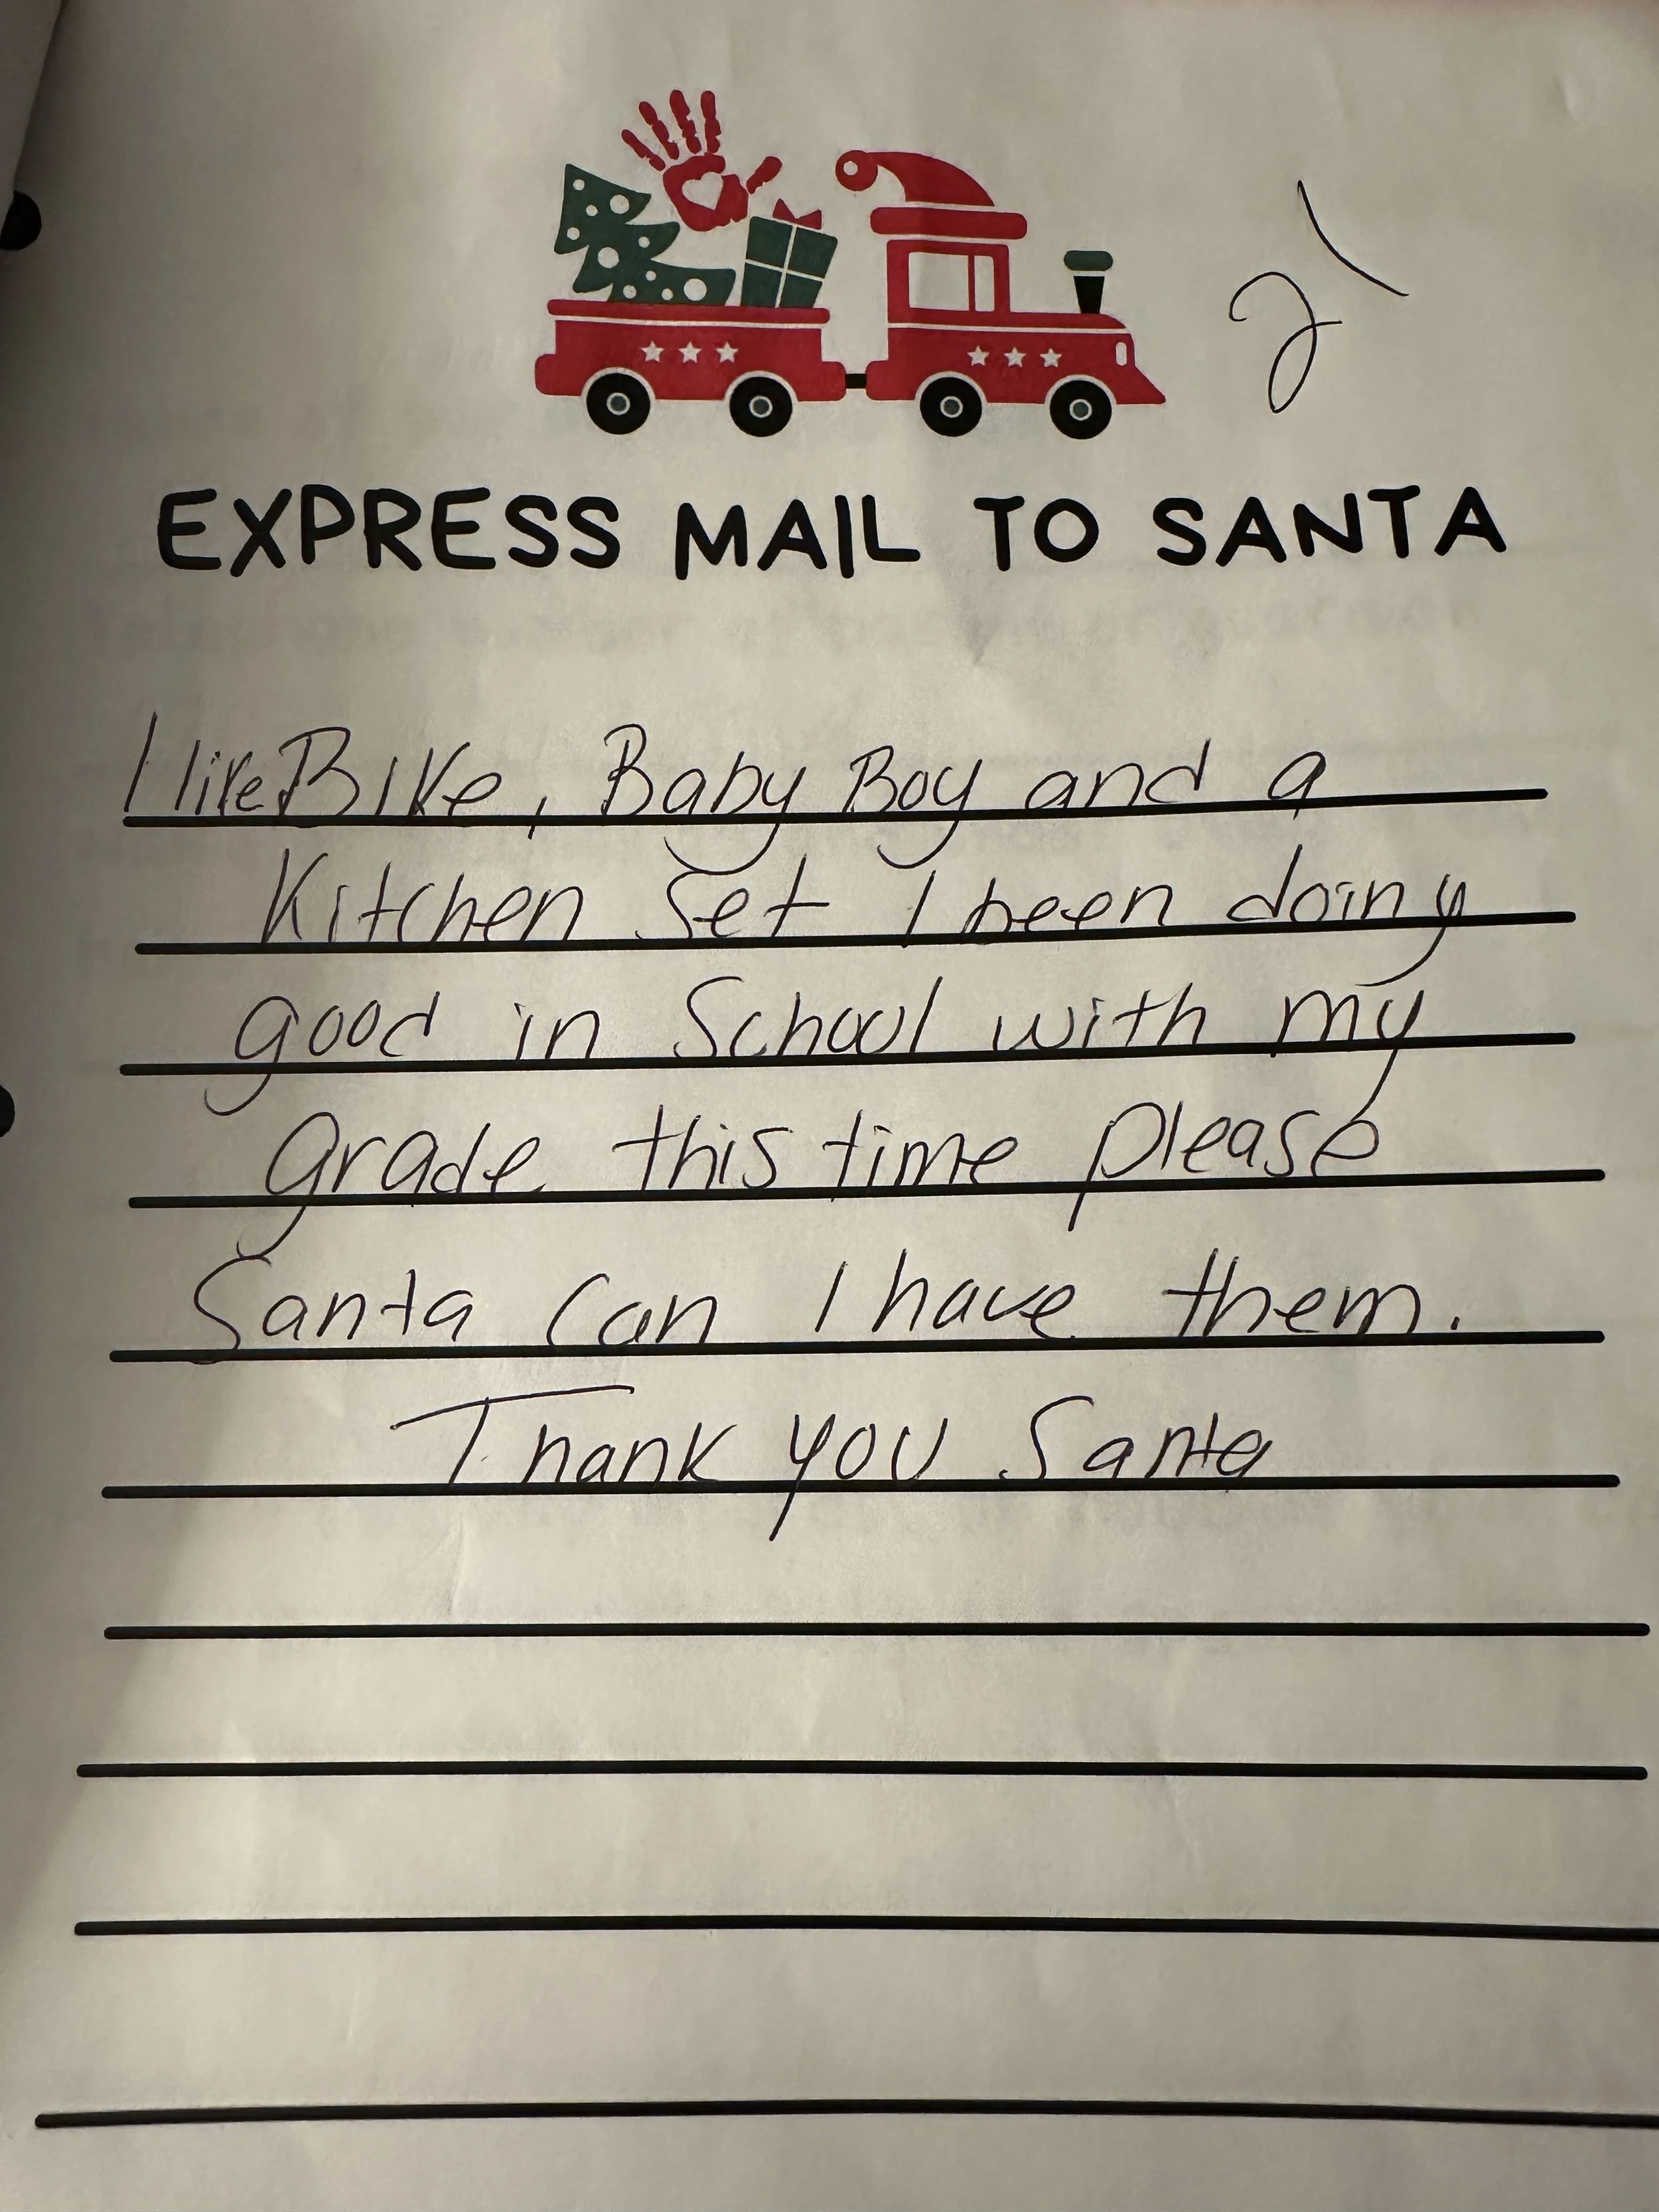 21
EXPRESS MAIL TO SANTA
I like Bike, Baby Boy and a
Kitchen Set I been doing
good in School with my
grade this time please
Santa Can I have them.
Thank you Santa